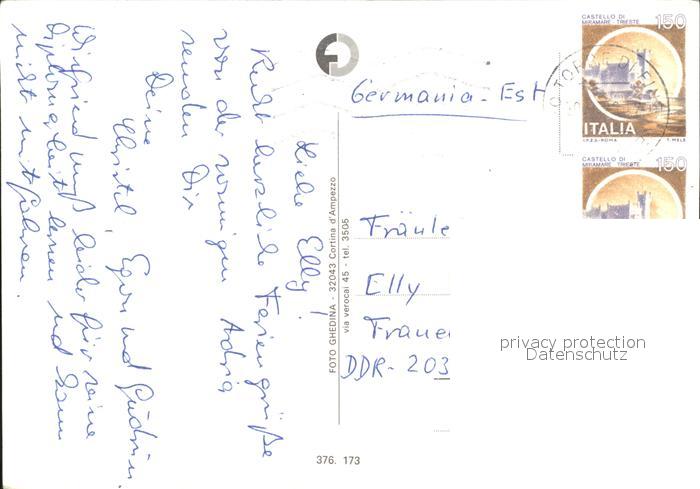 Liebe Elly!
Recht herzliche Feriengrüße
von der sonnigen Adria
senden Dir
Deine
Christel, Egon und Gudrun.
Winfried muß leider für seine
Diplomarbeit lernen und kann
nicht mitfahren.
FOTO GHEDINA - 32043 Cortina d'Ampezzo
via verocai 45 - tel. 3505
376. 173
Germania-Est
Fräule
Elly
Fraue
DDR-203
CASTELLO DI
MIRAMARE - TRIESTE
150
ITALIA
I.P.Z.S.-ROMA T. MELE
CASTELLO DI
MIRAMARE - TRIESTE
150
privacy protection
Datenschutz